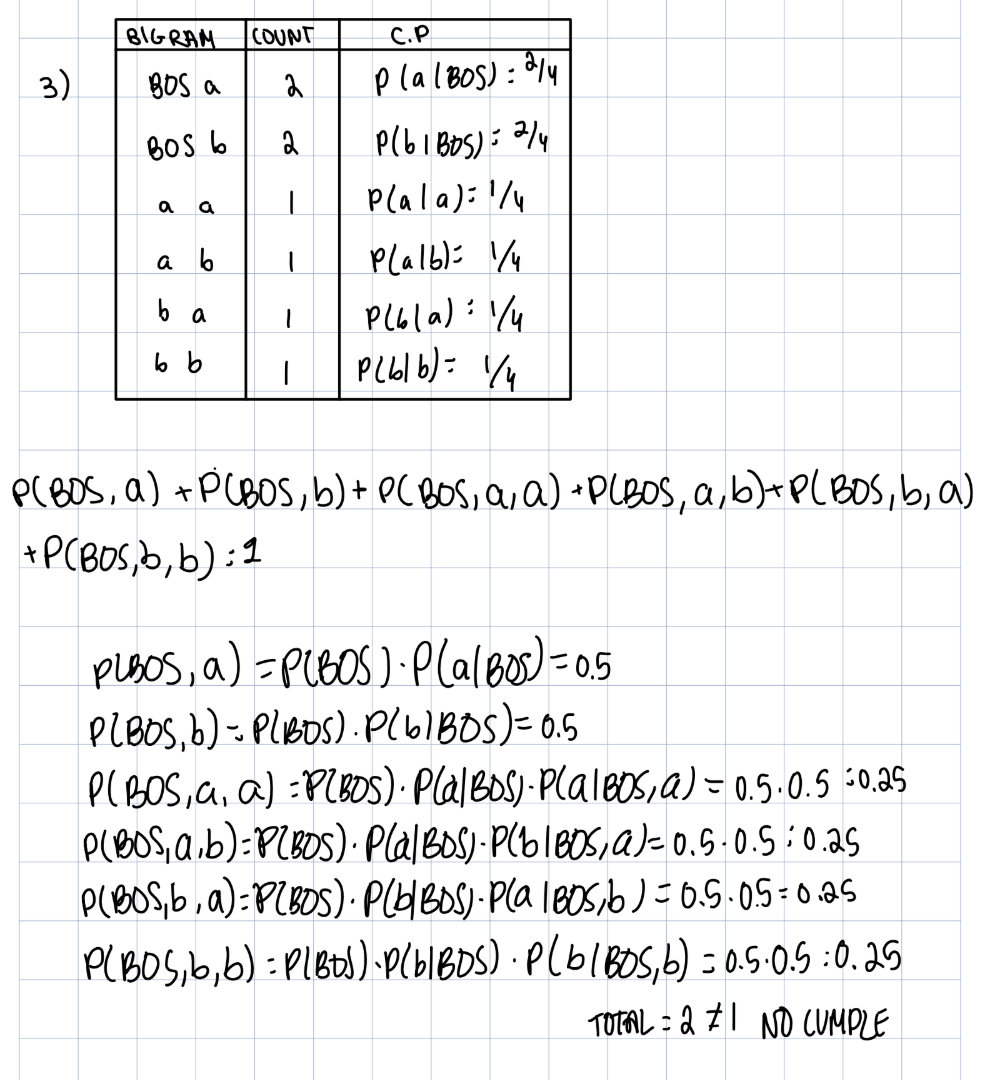 BIGRAM COUNT C.P
3) BOS a 2 P(a|BOS) = 2/4
BOS b 2 P(b|BOS) = 2/4
a a 1 P(a|a) = 1/4
a b 1 P(a|b) = 1/4
b a 1 P(b|a) = 1/4
b b 1 P(b|b) = 1/4
P(BOS, a) + P(BOS, b) + P(BOS, a, a) + P(BOS, a, b) + P(BOS, b, a)
+ P(BOS, b, b) = 1
P(BOS, a) = P(BOS) · P(a|BOS) = 0.5
P(BOS, b) = P(BOS) . P(b|BOS) = 0.5
P(BOS, a, a) = P(BOS) · P(a|BOS) · P(a|BOS, a) = 0.5 · 0.5 = 0.25
P(BOS, a, b) = P(BOS) · P(a|BOS) · P(b|BOS, a) = 0.5 · 0.5 = 0.25
P(BOS, b, a) = P(BOS) · P(b|BOS) · P(a|BOS, b) = 0.5 · 0.5 = 0.25
P(BOS, b, b) = P(BOS) · P(b|BOS) · P(b|BOS, b) = 0.5 · 0.5 = 0.25
TOTAL = 2 ≠ 1 NO CUMPLE